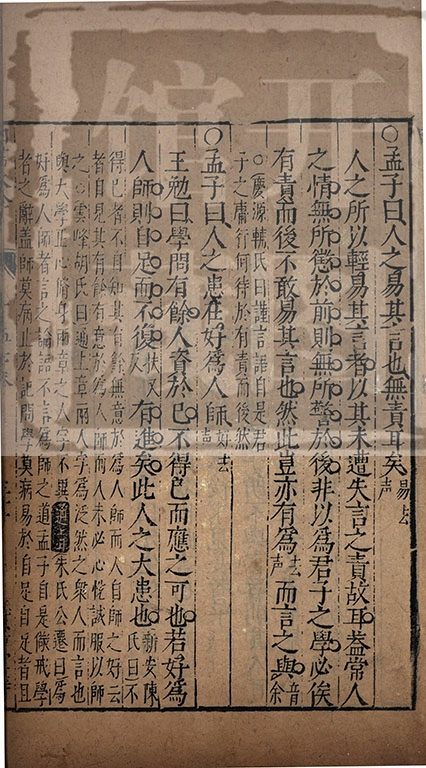 ○孟子曰人之易其言也無責耳矣易去聲
人之所以輕易其言者以其未遭失言之責故耳蓋常人
之情無所懲於前則無所警於後非以為君子之學必俟
有責而後不敢易其言也然此豈亦有為去聲而言之與音余
○慶源輔氏曰謹言語自是君
子之庸行何待於有責而後然
○孟子曰人之患在好為人師好去聲
王勉曰學問有餘人資於己不得已而應之可也若好為
人師則自足而不復扶又反有進矣此人之大患也新安陳氏曰不
得已者不自知其有餘無意於為人師而人自師之好云
者自見其有餘有意於為人師而人未必心悅誠服以師
之○雲峰胡氏曰通上章兩人字為泛然之衆人而言也
與大學正心脩身兩章之人字不異朱氏公遷曰為
好為人師者言之論語不言為師之道孟子自是儆戒學
者之辭蓋師莫病止於記問學莫病易於自是自足者且